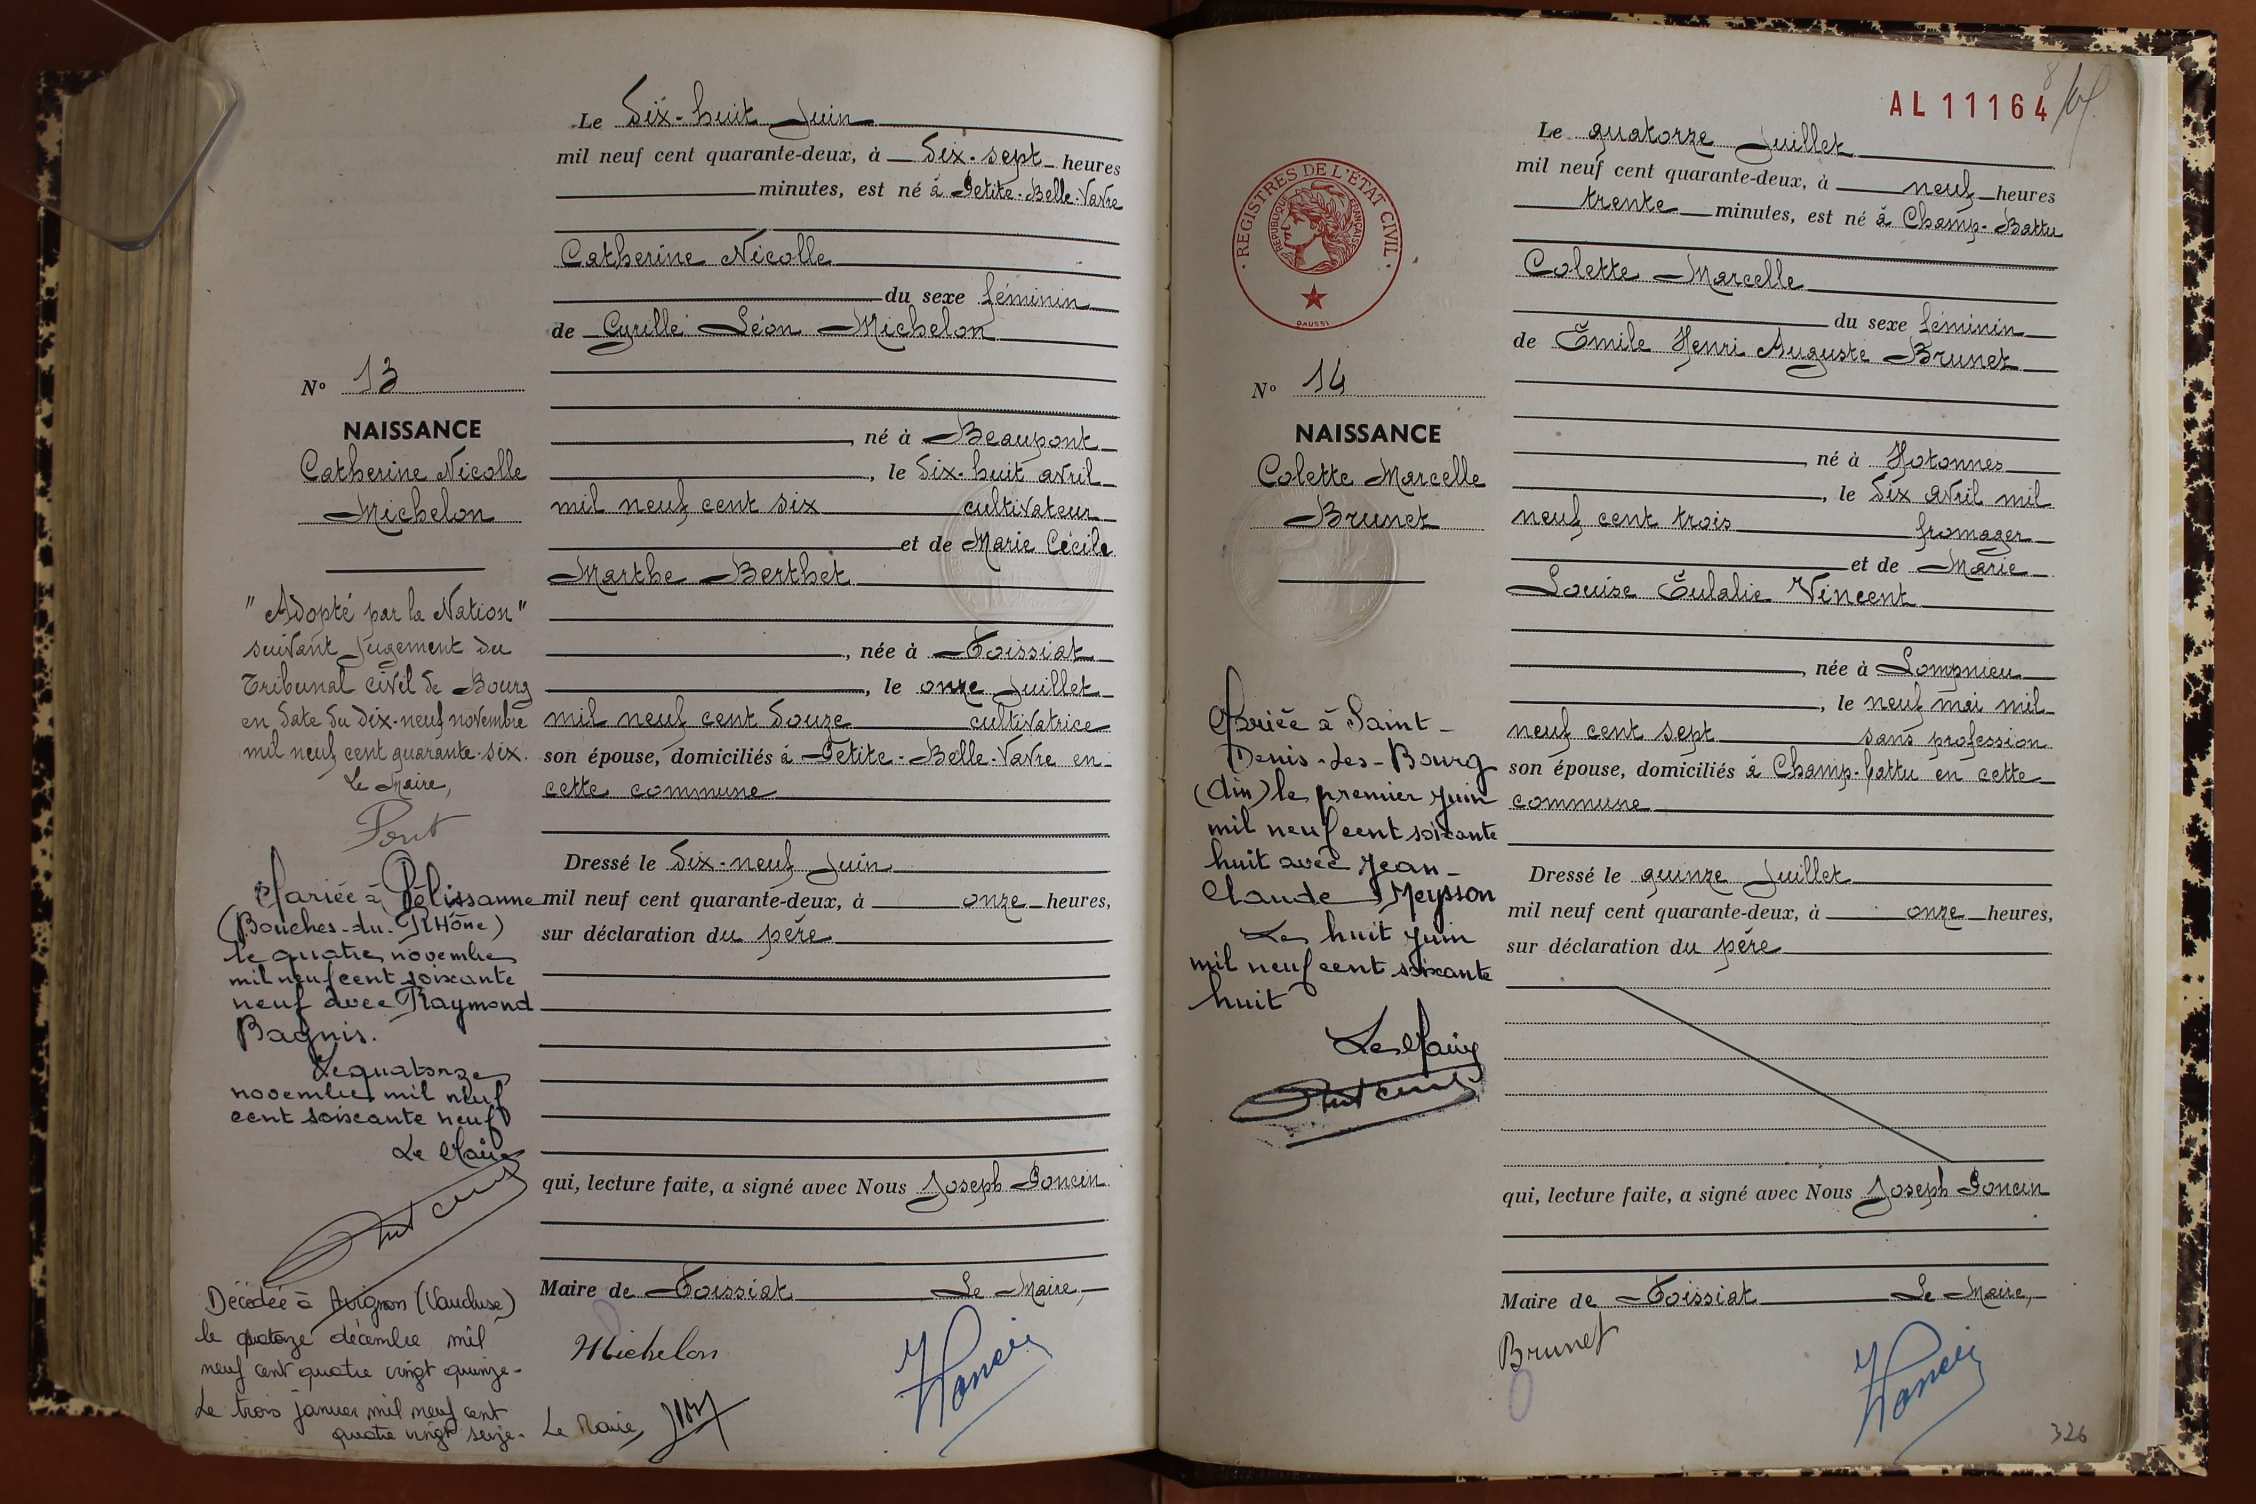 Le dix-huit Juin
mil neuf cent quarante-deux, à dix-sept heures
minutes, est né à Petite-Belle-Vavre
Catherine Nicolle
du sexe féminin
de Cyrille Léon Michelon
né à Beaupont
, le dix-huit avril
mil neuf cent six cultivateur
et de Marie Cécile
Marthe Berthet
, née à Toissiat
, le onze Juillet
mil neuf cent douze cultivatrice
son épouse, domiciliés à Petite-Belle-Vavre en
cette commune
Dressé le dix-neuf Juin
mil neuf cent quarante-deux, à onze heures,
sur déclaration du père
qui, lecture faite, a signé avec Nous Joseph Poncin
Maire de Toissiat Le Maire,
Michelon
Poncin
Nº 13
NAISSANCE
Catherine Nicolle
Michelon
"Adopté par la Nation"
suivant Jugement du
Tribunal civil de Bourg
en date du dix-neuf novembre
mil neuf cent quarante-six.
Le Maire,
Pont
Mariée à Pélissanne
(Bouches-du-Rhône)
le quatre novembre
mil neuf cent soixante
neuf avec Raymond
Bagnis.
Le quatorze
novembre mil neuf
cent soixante neuf
Le Maire
Décédée à Avignon (Vaucluse)
le quatorze décembre mil
neuf cent quatre vingt quinze-
Le trois janvier mil neuf cent
quatre vingt seize.
Le Maire,
AL 11164
8
REGISTRES DE L'ÉTAT CIVIL
RÉPUBLIQUE FRANÇAISE
DAUSSI
Le quatorze Juillet
mil neuf cent quarante-deux, à neuf heures
trente minutes, est né à Champ-Battu
Colette Marcelle
du sexe féminin
de Émile Henri Auguste Brunet
né à Hotonnes
, le six avril mil
neuf cent trois fromager
et de Marie
Louise Eulalie Vincent
, née à Lompnieu
, le neuf mai mil
neuf cent sept sans profession
son épouse, domiciliés à Champ-battu en cette
commune
Dressé le quinze Juillet
mil neuf cent quarante-deux, à onze heures,
sur déclaration du père
qui, lecture faite, a signé avec Nous Joseph Poncin
Maire de Toissiat Le Maire,
Brunet
Poncin
Nº 14
NAISSANCE
Colette Marcelle
Brunet
Mariée à Saint-
Denis-Les-Bourg
(Ain) le premier juin
mil neuf cent soixante
huit avec Jean-
Claude Meysson
Le huit juin
mil neuf cent soixante
huit
Le Maire
326